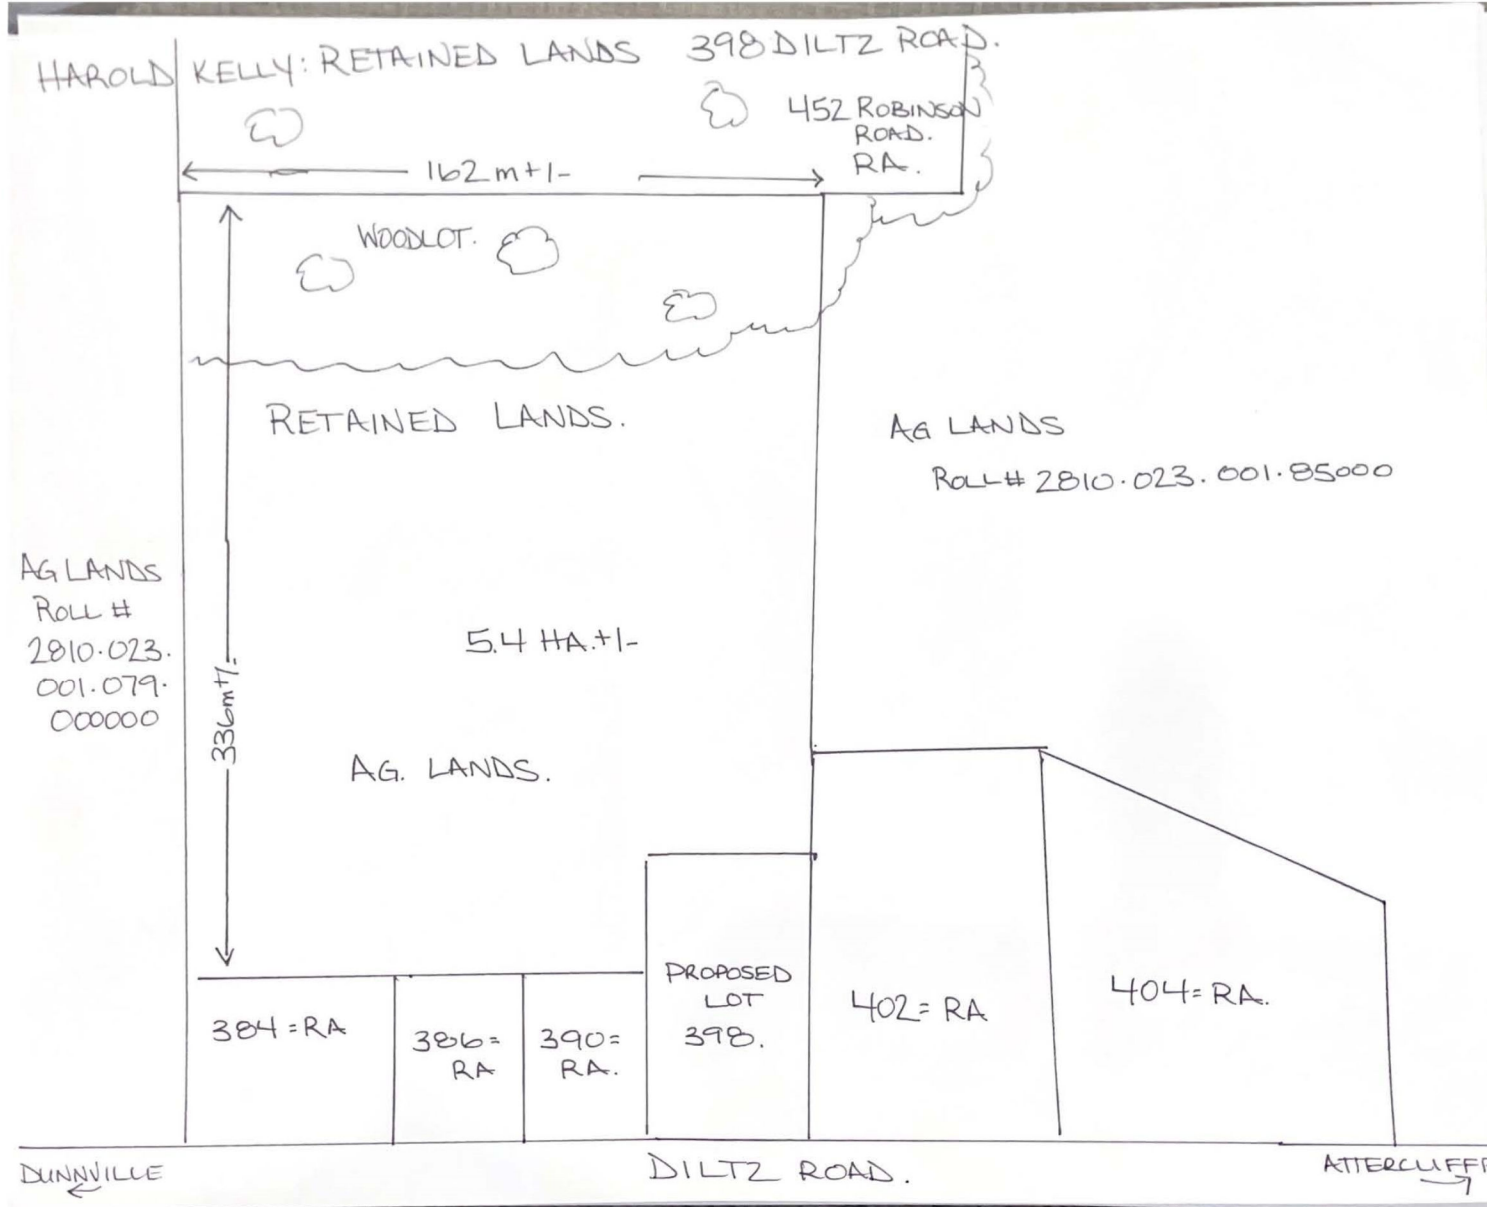 HAROLD KELLY: RETAINED LANDS 398 DILTZ ROAD.
452 ROBINSON
ROAD.
RA.
162m+/-
WOODLOT.
RETAINED LANDS.
AG LANDS
ROLL# 2810.023.001.85000
AG LANDS
ROLL #
2810.023.
001.079.
000000
336m+/-
5.4 HA.+/-
AG. LANDS.
384=RA
386=
RA
390=
RA.
PROPOSED
LOT
398.
402=RA
404=RA.
DUNNVILLE
DILTZ ROAD.
ATTERCLIFFE